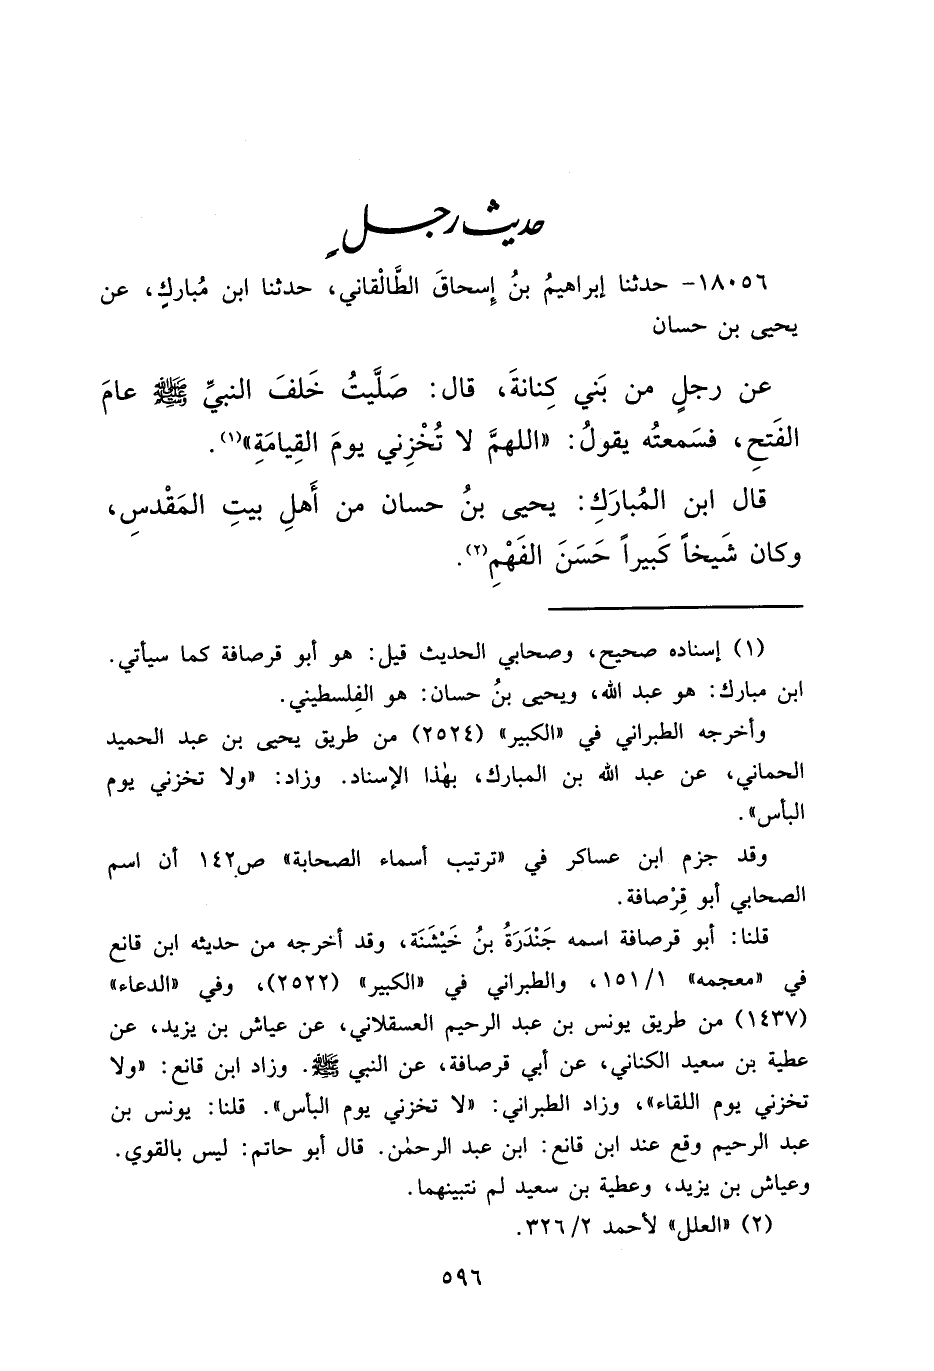 حديث رجلٍ
١٨٠٥٦- حدثنا إبراهيمُ بنُ إسحاقَ الطَّالْقاني، حدثنا ابن مُباركٍ، عن
يحيى بن حسان
عن رجلٍ من بَني كِنانةَ، قال: صَلَّيتُ خَلفَ النبيِّ ﷺ عامَ
الفَتحِ، فسَمعتُه يقولُ: «اللهمَّ لا تُخْزِني يومَ القِيامَةِ»(١).
قال ابن المُبارَكِ: يحيى بنُ حسان من أَهلِ بيتِ المَقْدسِ،
وكان شَيخاً كَبيراً حَسَنَ الفَهْمِ(٢).
(١) إسناده صحيح، وصحابي الحديث قيل: هو أبو قرصافة كما سيأتي.
ابن مبارك: هو عبد الله، ويحيى بنُ حسان: هو الفِلسطيني.
وأخرجه الطبراني في «الكبير» (٢٥٢٤) من طريق يحيى بن عبد الحميد
الحماني، عن عبد الله بن المبارك، بهٰذا الإسناد. وزاد: «ولا تخزني يوم
البأس».
وقد جزم ابن عساكر في «ترتيب أسماء الصحابة» ص١٤٢ أن اسم
الصحابي أبو قِرْصافة.
قلنا: أبو قرصافة اسمه جَنْدَرَةُ بنُ خَيْشَنَة، وقد أخرجه من حديثه ابن قانع
في «معجمه» ١/ ١٥١، والطبراني في «الكبير» (٢٥٢٢)، وفي «الدعاء»
(١٤٣٧) من طريق يونس بن عبد الرحيم العسقلاني، عن عياش بن يزيد، عن
عطية بن سعيد الكناني، عن أبي قرصافة، عن النبي ﷺ. وزاد ابن قانع: «ولا
تخزني يوم اللقاء»، وزاد الطبراني: «لا تخزني يوم البأس». قلنا: يونس بن
عبد الرحيم وقع عند ابن قانع: ابن عبد الرحمٰن. قال أبو حاتم: ليس بالقوي.
وعياش بن يزيد، وعطية بن سعيد لم نتبينهما.
(٢) «العلل» لأحمد ٢/ ٣٢٦.
٥٩٦